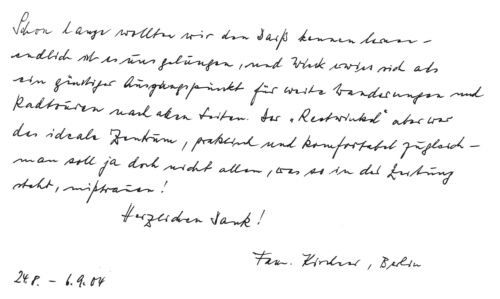 Schon lange wollten wir den Darß kennen lernen –
endlich ist es uns gelungen, und Wieck erwies sich als
ein günstiger Ausgangspunkt für weite Wanderungen und
Radtouren nach allen Seiten. Der „Restwinkel" aber war
das ideale Zentrum, praktisch und komfortabel zugleich –
man soll ja doch nicht allem, was so in der Zeitung
steht, mißtrauen!
Herzlichen Dank!
Fam. Kirchner, Berlin
24.8. – 6.9.04